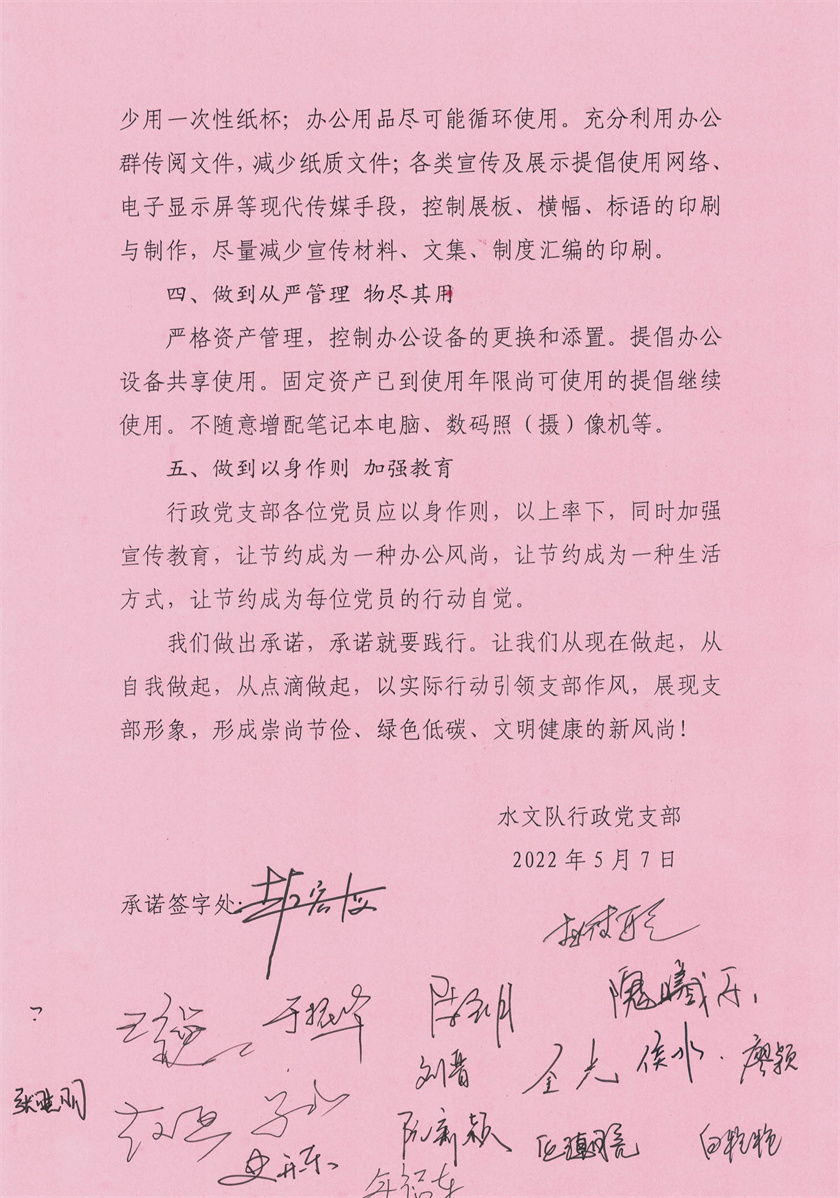 少用一次性纸杯；办公用品尽可能循环使用。充分利用办公
群传阅文件，减少纸质文件；各类宣传及展示提倡使用网络、
电子显示屏等现代传媒手段，控制展板、横幅、标语的印刷
与制作，尽量减少宣传材料、文集、制度汇编的印刷。
四、做到从严管理 物尽其用
严格资产管理，控制办公设备的更换和添置。提倡办公
设备共享使用。固定资产已到使用年限尚可使用的提倡继续
使用。不随意增配笔记本电脑、数码照（摄）像机等。
五、做到以身作则 加强教育
行政党支部各位党员应以身作则，以上率下，同时加强
宣传教育，让节约成为一种办公风尚，让节约成为一种生活
方式，让节约成为每位党员的行动自觉。
我们做出承诺，承诺就要践行。让我们从现在做起，从
自我做起，从点滴做起，以实际行动引领支部作风，展现支
部形象，形成崇尚节俭、绿色低碳、文明健康的新风尚！
水文队行政党支部
2022 年 5 月 7 日
承诺签字处：
于振峰
刘晋 侯水 廖颖
张晓明
阮新颖 白艳艳